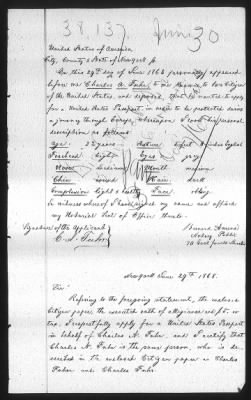 38,137 June 30
United States of America
City, County & State of New York ss.
On this 29th day of June 1868 personally appeared
before me Charles A. Fahr to me known to be a Citizen
of the United States, and deposed, that he wanted to apply
for a United States Passport in order to be protected during
a journey through Europe, whereupon I took his personal
description as follows:
Age: 22 years Stature 5 feet inches English
Forehead light Eyes grey
Nose Mouth
Chin round Hair dark
Complexion light & healthy Face oblong
In witness whereof I have signed my name and affixed
my Notarial Seal of Office thereto.
Signature of the Applicant
Notary Public
New York June 29th 1868.
Sir
Referring to the foregoing statement, the enclosed
Citizen paper, the oath of Allegiance
too, I respectfully apply for a United States Passport
in behalf of Charles A. Fahr, and I certify that
Charles A. Fahr is the same person, who is de-
scribed in the enclosed Citizen paper as Charles
Fahr and Charles Fahr.